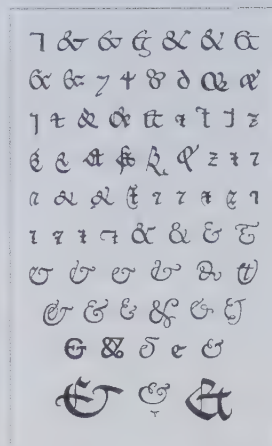 ⁊ & & & & & &
& & ⁊ & & &
⁊ & & & & ⁊
& & & & & & ⁊ ⁊ ⁊
& & & ⁊ ⁊ ⁊ & ⁊
⁊ ⁊ ⁊ ⁊ & & & &
& & & & & &
& & & & & &
& & & & &
& & &